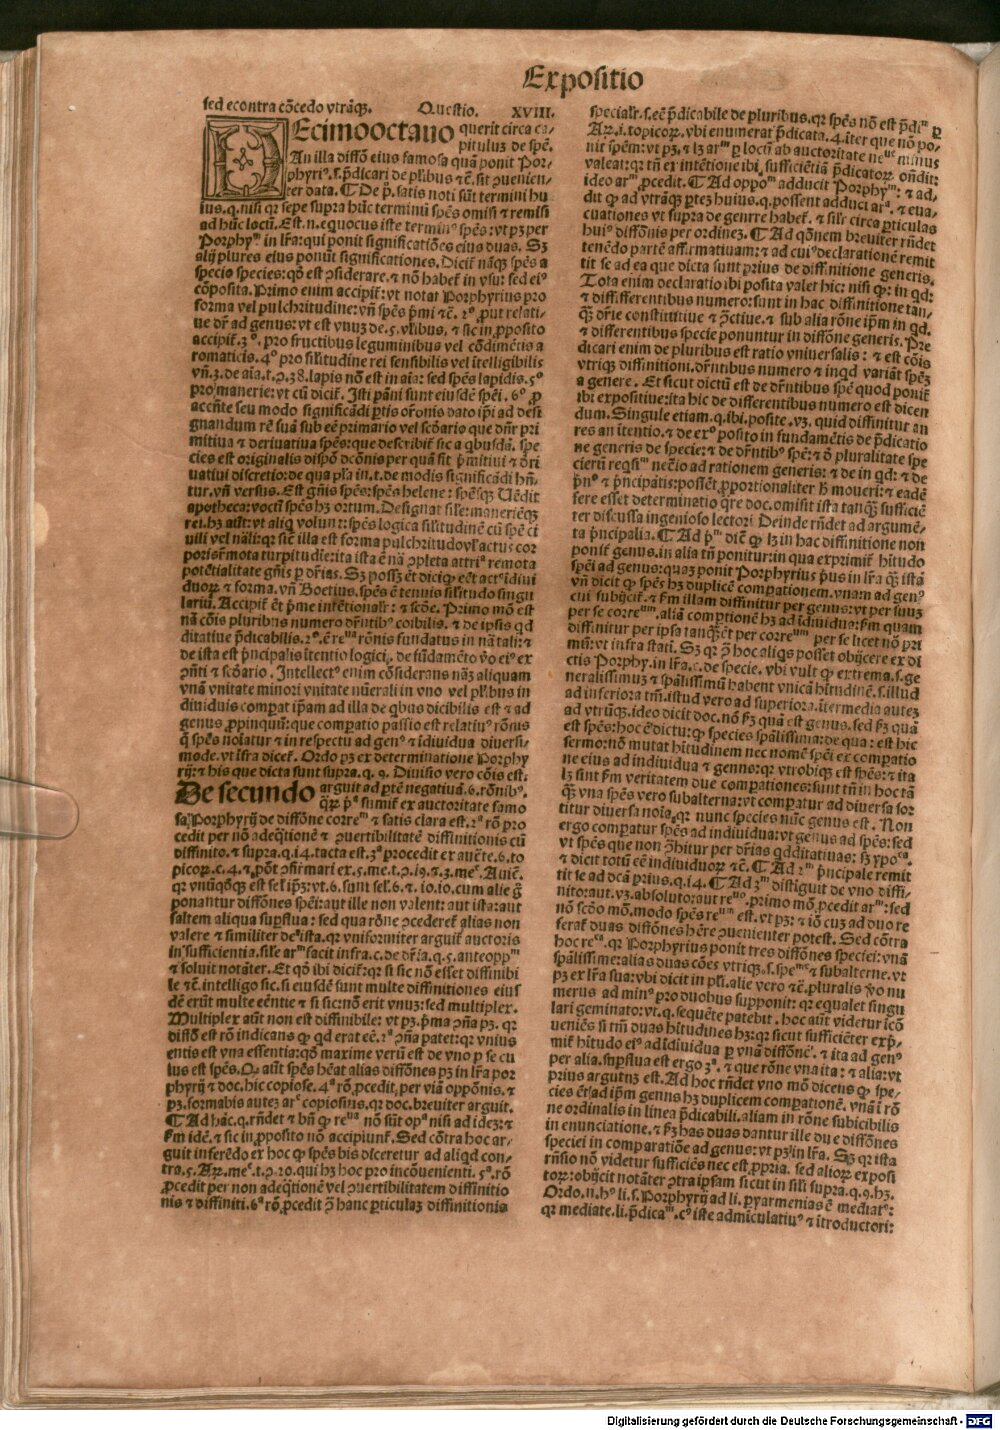 Expositio
sed econtra cōcedo vtrāqȝ. Questio. XVIII.
DEcimooctauo querit circa ca-
pitulum de spē.
An illa diffō eius famosa quā ponit Por-
phyriꝰ.s.p̄dicari de pl̄ibus ⁊c̄.sit ꝯuenien-
ter data. ¶ De pͦ. satis noti sūt termini hu
ius.q.nisi qr sepe supra hūc terminū spēs omisi ⁊ remisi
ad hūc locū. Est.n.equocus iste terminꝰ spēs: vt pȝ per
Porphyᵐ in lr̄a: qui ponit significatiōes eius duas. Sȝ
alij plures eius ponūt significationes. Dicit nāqȝ spēs a
specio species: qd̄ est ꝯsiderare. ⁊ nō habet in vsu: sed eiꝰ
cōposita. Primo enim accipit: vt notat Porphyrius pro
forma vel pulchritudine: vn̄ spēs p̄mi ⁊c̄. 2º prout relati-
ue dr̄ ad genus: vt est vnum de.5.vl̄ibus. ⁊ sic in ꝓposito
accipit. 3º. pro fructibus leguminibus vel cōdimētis a
romaticis. 4º pro sil̄itudine rei sensibilis vel ītelligibilis
vn̄.3.de aīa.t.ꝯ.38.lapis nō est in aīa: sed spēs lapidis. 5º
pro manerie: vt cū dicit. Isti pāni sunt eiusdē spēi. 6º ꝓ
accn̄te seu modo significādi ꝑtis or̄onis dato ip̄i ad desi
gnandum rē suā sub eē primario vel scōario que dn̄r pri
mitiua ⁊ deriuatiua spēs: que describit̄ sic a qbusdā. spe
cies est originalis dispō dcōnis per quā fit p̄mitiui ⁊ dri
uatiui discretio: de qua pl̄a in.t.de modis significādi hn̄-
tur. vn̄ versus. Est gn̄is spēs: spēs helene: spēsqȝ Uēdit
apotheca: vocū spēs hȝ ortum. Designat sil̄e: maneriēqȝ
rei. hȝ aūt: vt aliq volunt: spēs logica sil̄itudinē cū spē ci
uili vel nāli: qr sic illa est forma pulchritudo vl̄ actus cor
poris remota turpitudie: ita ista ē nā ꝯpleta attriª remota
potētialitate gn̄is p dr̄ias. Sȝ possȝ ēt dici qꝫ eēt actꝰ īdiui
duorꝝ ⁊ forma. vn̄ Boetius. spēs ē tennis sil̄itudo singu
lariū. Accipit ēt p̄me intētionalr̄: ⁊ scōe. Primo mō est
nā cōis pluribus numero dr̄ntibꝰ coībilis. ⁊ de ipsis qd
ditatiue p̄dicabilis. 2º.ē reᵘᵃ rōnis fundatus in nā tali: ⁊
de ista est p̄ncipalis ītentio logici. de fūdamēto v̄o eiꝰ ex
ꝯn̄ti ⁊ scōario. Intellectꝰ enim cōsiderans nāȝ aliquam
vnā vnitate minori vnitate nūerali in vno vel pl̄ibus in
diuiduis comparat ip̄am ad illa de qbus dicibilis est ⁊ ad
genus ꝓpinquū: que comparatio passio est relatiuꝰ rōnis
q̄ spēs noiatur ⁊ in respectu ad genꝰ ⁊ īdiuidua diuersi-
mode. vt īfra dicet. Ordo pȝ ex determinatione Porphy
rij: ⁊ his que dicta sunt supra.q.9. Diuisio vero cōis est.
De secundo arguit ad ꝑtē negatiuā.6.rōnibꝰ.
quaꝝ pª sumit ex auctoritate famo
sa Porphyrij de diffōne correᵐ ⁊ satis clara est. 2ª rō pro
cedit per nō adeq̄tionē ⁊ ꝯuertibilitatē diffinitionis cū
diffinito. ⁊ supra.q.14.tacta est. 3ª procedit ex aucte.6.to
picorꝝ.c.4. ⁊ pōt ꝯfirmari ex.5.me.t.ꝯ.19.⁊.3.meᶜ. Auic̄.
qr vnūqōqȝ est sel̄ ip̄ȝ: vt.6.sunt sel̄.6.⁊.10.10. cum alie ḡ
ponantur diffōnes spēi: aut ille non valent: aut ista: aut
saltem aliqua suꝑflua: sed qua rōne ꝯcederet alias non
valere ⁊ similiter deᵗista. qr vniformiter arguit auctoris
in sufficientia. sil̄e arᵐ facit infra.c.de dr̄ia.q.5.anteoppᵐ
⁊ soluit notāter. Et qō ibi dicit: qr si sic nō esset diffinibi
le ⁊c̄.intelligo sic. si eiusdē sunt multe diffinitiones eius
dē erūt multe eēntie ⁊ si sic: nō erit vnuȝ: sed multiplex.
Multiplex aūt non est diffinibile: vt pȝ. p̄ma ꝯn̄a pȝ. qr
diffō est rō indicans qꝫ qd erat eē. 2ª ꝯn̄a patet: qr vnius
entis est vna essentia: qō maxime verū est de vno p se cu
ius est spēs. Qꝫ aūt spēs hēat alias diffōnes pȝ in lr̄a por
phyrij ⁊ doc. hic copiose. 4ª rō ꝓcedit. per viā opponis. ⁊
pȝ. formabis autez arᶜ copiosius. qr doc. breuiter arguit.
¶ Ad hāc.q.rn̄det ⁊ hn̄ qꝫ reᵘᵃ nō sūt opª nisi ad ideȝ: ⁊
ẝm idē. ⁊ sic in ꝓposito nō accipiunt. Sed cōtra hoc ar-
guit inferēdo ex hoc qꝫ spēs bis diceretur ad aliqd con-
tra.5. Ar.meᶜ.t.ꝯ.20. qui hȝ hoc pro incōuenienti. 5ª.rō
ꝓcedit per non adeq̄tionē vel ꝯuertibilitatem diffinitio
nis ⁊ diffiniti. 6ª rō ꝓcedit ꝯ hanc particulaȝ diffinitionis
specialr̄.s.eē p̄dicabile de pluribus. qr spēs nō est p̄diᵐ ꝑ
Ar.1.topicorꝝ. vbi enumerat p̄dicata.4.iter que nō po-
nit spēm: vt pȝ. ⁊ lȝ arᵐ ꝑ locū ab auctoritate neᵘᵉ minus
valeat: qr tn̄ ex intētione ibi sufficiētiā p̄dicatorꝝ on̄dit:
ideo arᵐ ꝓcedit. ¶ Ad oppoᵐ adducit Porphyᵐ: ⁊ ad-
dit qꝫ ad vtrāqȝ ꝑtez huius.q.possent adduci arª. ⁊ eua-
cuationes vt supra de genere habet. ⁊ sil̄r circa ꝑticulas
huiꝰ diffōnis per ordinez. ¶ Ad qōnem breuiter rn̄det
tenēdo partē affirmatiuam: ⁊ ad cuiꝰ declarationē remit
tit se ad ea que dicta sunt prius de diffinitione generis.
Tota enim declaratio ibi posita valet hic: nisi qꝫ: in qd:
⁊ differentibus numero: sunt in hac diffinitione tan-
qȝ dr̄ie constitutiue ⁊ ꝯctiue. ⁊ sub alia rōne ip̄m in qd.
⁊ differentibus specie ponuntur in diffōne generis. Pre
dicari enim de pluribus est ratio vniuersalis: ⁊ est cōis
vtriqȝ diffinitioni. dr̄ntibus numero ⁊ inqd variāt spēȝ
a genere. Et sicut dictū est de dr̄ntibus spē quod ponit
ibi expositiue: ita hic de differentibus numero est dicen
dum. Singule etiam.q.ibi.posite.vȝ. quid diffinitur an
res an ītentio. ⁊ de exº posito in fundamētis de p̄dicatio
ne generis de specie: ⁊ de dr̄ntibꝰ spē: ⁊ ō pluralitate spe
cierū reqsiᵐ necīo ad rationem generis: ⁊ de in qd: ⁊ de
p̄nº ⁊ p̄ncipatis: possēt ꝓportionaliter h̄ moueri: ⁊ eadē
fere esset determinatio qre doc. omisit ista tanqȝ sufficiē
ter discussa ingenioso lectori Deinde rn̄det ad argumē-
ta p̄ncipalia. ¶ Ad pᵐ diē qꝫ lȝ in hac diffinitione non
ponit genus. in alia tn̄ ponitur: in qua exprimit hitudo
spēi ad genus: quaȝ ponit Porphyrius p̄us in lr̄a qȝ istā
vn̄ dicit qꝫ spēs hȝ duplicē compationem. vnam ad genꝰ
cui subijcit. ⁊ ẝm illam diffinitur per genus: vt per suuȝ
per se correᵘᵘᵐ. aliā comptionē hȝ ad īdiuidua: ẝm quam
diffinitur per ipsa tanqȝ ēt per correᵘᵘᵐ per se licet nō pri
mū: vt infra stati. Sȝ qr ꝯ hoc aliqs posset obijcere ex di
ctis Porphy.in lr̄a.c.de specie. vbi vult qꝫ extrema.s.ge
neralissimuȝ ⁊ spālissimū habent vnicā hītudinē.s.illud
ad inferiora tm̄.istud vero ad superiora. ītermedia autez
ad vtrūqȝ. ideo dicit doc.nō ẝȝ quā est genus. sed ẝȝ quā
est spēs: hoc ē dictu: qꝫ species spālissima: de qua: est hic
sermo: nō mutat hītudinem nec nomē spēi ex compatio
ne eius ad indiuidua ⁊ genus: qr vtrobiqȝ est spēs: ⁊ ita
lȝ sint ẝm veritatem due compationes: sunt tn̄ in hoc tā
qȝ vna spēs vero subalterna: vt compatur ad diuersa sor
titur diuersa noīa. qr nunc species nūc genus est. Non
ergo compatur spēs ad indiuidua: vt genus ad spēs: sed
vt spēs que non ꝯhitur per dr̄ias qdditatiuas: sȝ ypoᶜᵃ.
⁊ dicit totū eē indiuiduorꝝ ⁊c̄. ¶ Ad 2ᵐ p̄ncipale remit
tit se ad dcā prius.q.14. ¶ Ad 3ᵐ distīguit de vno diffi-
nito: aut.vȝ.absoluto: aut reᵘᵒ. primo mō ꝓcedit arᵐ: sed
nō scōo mō. modo spēs reᵘᵐ est. vt pȝ: ⁊ iō cuȝ ad duo re
ferat duas diffōnes hēre ꝯuenienter potest. Sed cōtra
hoc reᶜᵃ. qr Porphyrius ponit tres diffōnes speciei: vnā
spālissime: alias duas cōes vtriqȝ.s.speᵐᵉ ⁊ subalterne. vt
pȝ ex lr̄a sua: vbi dicit in pl̄i. alie vero ⁊c̄. pluralis v̄o nu
merus ad minꝰ pro duobus supponit: qr equalet singu
lari geminato: vt.q.sequēte patebit. hoc aūt videtur īcō
ueniēs si tm̄ duas hītudines hȝ: qr sicut sufficiēter exp̄-
mit hītudo eiꝰ ad īdiuidua ꝑ vnā diffōnē. ⁊ ita ad genꝰ
per alia. suꝑflua est ergo 3ª. ⁊ que rōne vna ita: ⁊ alia: vt
prius argutuȝ est. Ad hoc rn̄det vno mō dicens qꝫ spe-
cies etsi ad ip̄m genus hȝ duplicem compationē. vnā ī rō
ne ordinalis in linea p̄dicabili. aliam in rōne subicibilis
in enunciatione. ⁊ ẝȝ has duas dantur ille due diffōnes
speciei in comparatiōe ad genus: vt pȝ in lr̄a. Sȝ qr ista
rn̄sio nō videtur sufficiēs nec est ꝓpria. sed aliorꝝ exposi
torꝝ: obijcit notāter ꝯtra ipsam sicut in sil̄i supra.q.9.hȝ.
Ordo.11.hꝰ li.s.Porphyrij ad li.ꝑyarmenias ē mediatᵉ:
qr mediate.li.p̄dicaᵐ.cꝰ iste admīculatiuꝰ ⁊ ītroductori:
Digitalisierung gefördert durch die Deutsche Forschungsgemeinschaft - DFG